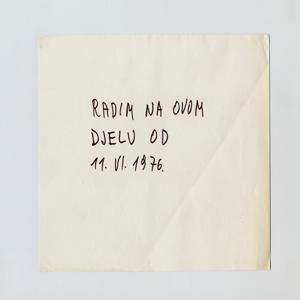 RADIM NA OVOM
DJELU OD
11. VI. 1976.